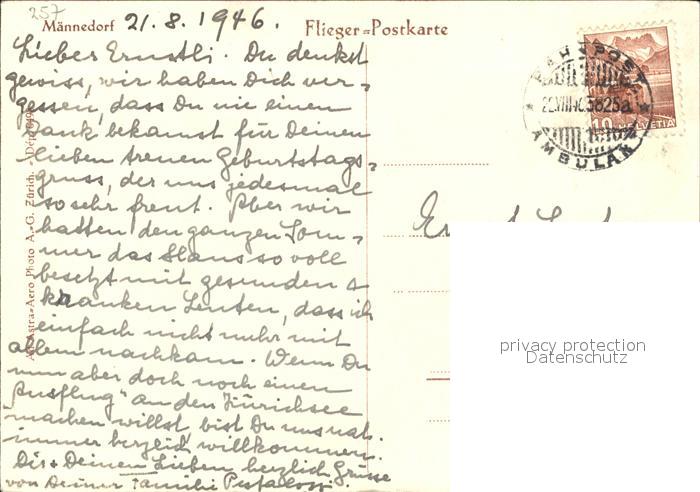 257
Männedorf 21.8.1946.
Flieger=Postkarte
Liebes Ernstli. Du denkst
gewiss, wir haben Dich ver-
gessen, dass Du nie einen
Dank bekamst für Deinen
lieben treuen Geburtstags-
gruss, der uns jedesmal
so sehr freut. Aber wir
hatten den ganzen Som-
mer das Haus so voll
besetzt mit gesunden &
kranken Leuten, dass ich
einfach nicht mehr mit
allem nachkam. Wenn Du
nun aber doch noch einen
"Ausflug" an den Zürichsee
machen willst bist Du uns nat.
immer herzlich willkommen.
Dir + Deinen Lieben herzlich Grüsse
von Deiner Familie Pestalozzi.
Astra-Aero Photo A.-G. Zürich.
BAHNPOST
AMBULANT
10 HELVETIA
privacy protection
Datenschutz